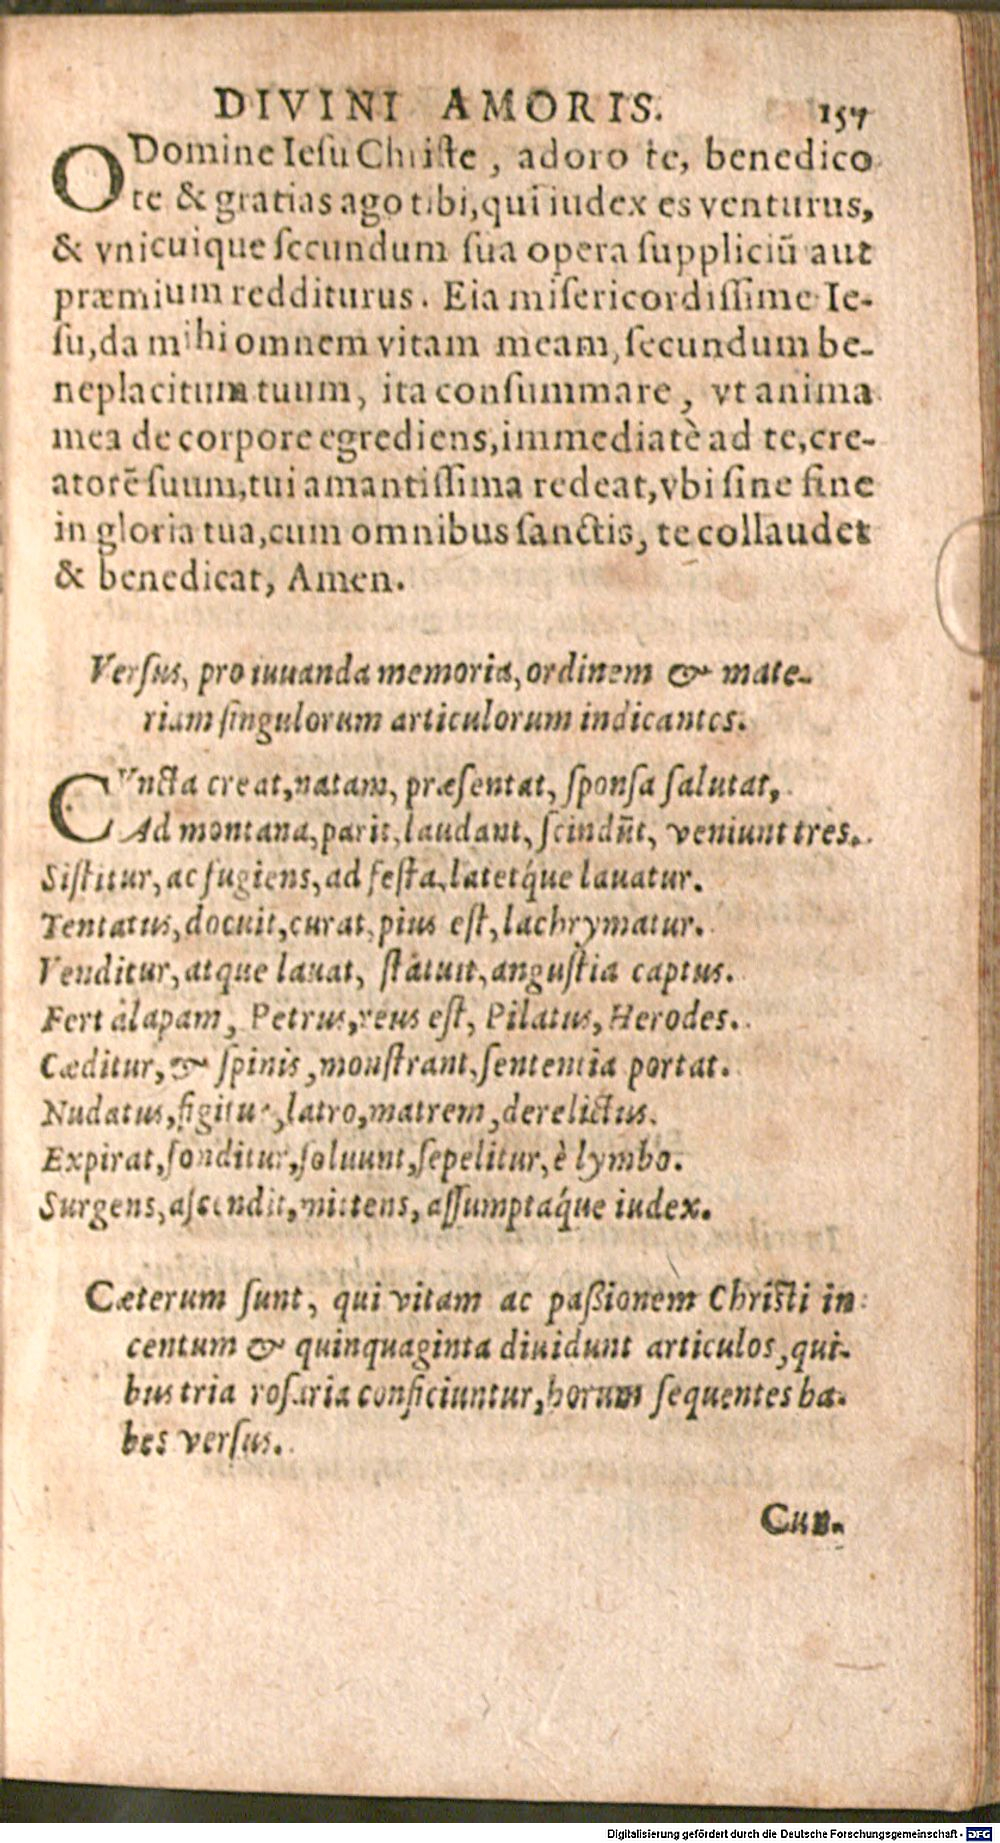 DIVINI AMORIS. 157
O Domine Iesu Christe, adoro te, benedico
te & gratias ago tibi, qui iudex es venturus,
& vnicuique secundum sua opera suppliciū aut
præmium redditurus. Eia misericordissime Ie-
su, da mihi omnem vitam meam, secundum be-
neplacitum tuum, ita consummare, vt anima
mea de corpore egrediens, immediatè ad te, cre-
atorē suum, tui amantissima redeat, vbi sine fine
in gloria tua, cum omnibus sanctis, te collaudet
& benedicat, Amen.
Versus, pro iuuanda memoria, ordinem & mate-
riam singulorum articulorum indicantes.
CVncta creat, natam, præsentat, sponsa salutat,
Ad montana, parit, laudant, scindūt, veniunt tres.
Sistitur, ac fugiens, ad festa, latetq́ue lauatur.
Tentatus, docuit, curat, pius est, lachrymatur.
Venditur, atque lauat, statuit, angustia captus.
Fert alapam, Petrus, reus est, Pilatus, Herodes.
Cæditur, & spinis, monstrant, sententia portat.
Nudatus, figitur, latro, matrem, derelictus.
Expirat, fonditur, soluunt, sepelitur, è lymbo.
Surgens, ascendit, mittens, assumptaq́ue iudex.
Cæterum sunt, qui vitam ac paßionem Christi in
centum & quinquaginta diuidunt articulos, qui-
bus tria rosaria conficiuntur, horum sequentes ha-
bes versus.
Cun-
Digitalisierung gefördert durch die Deutsche Forschungsgemeinschaft - DFG